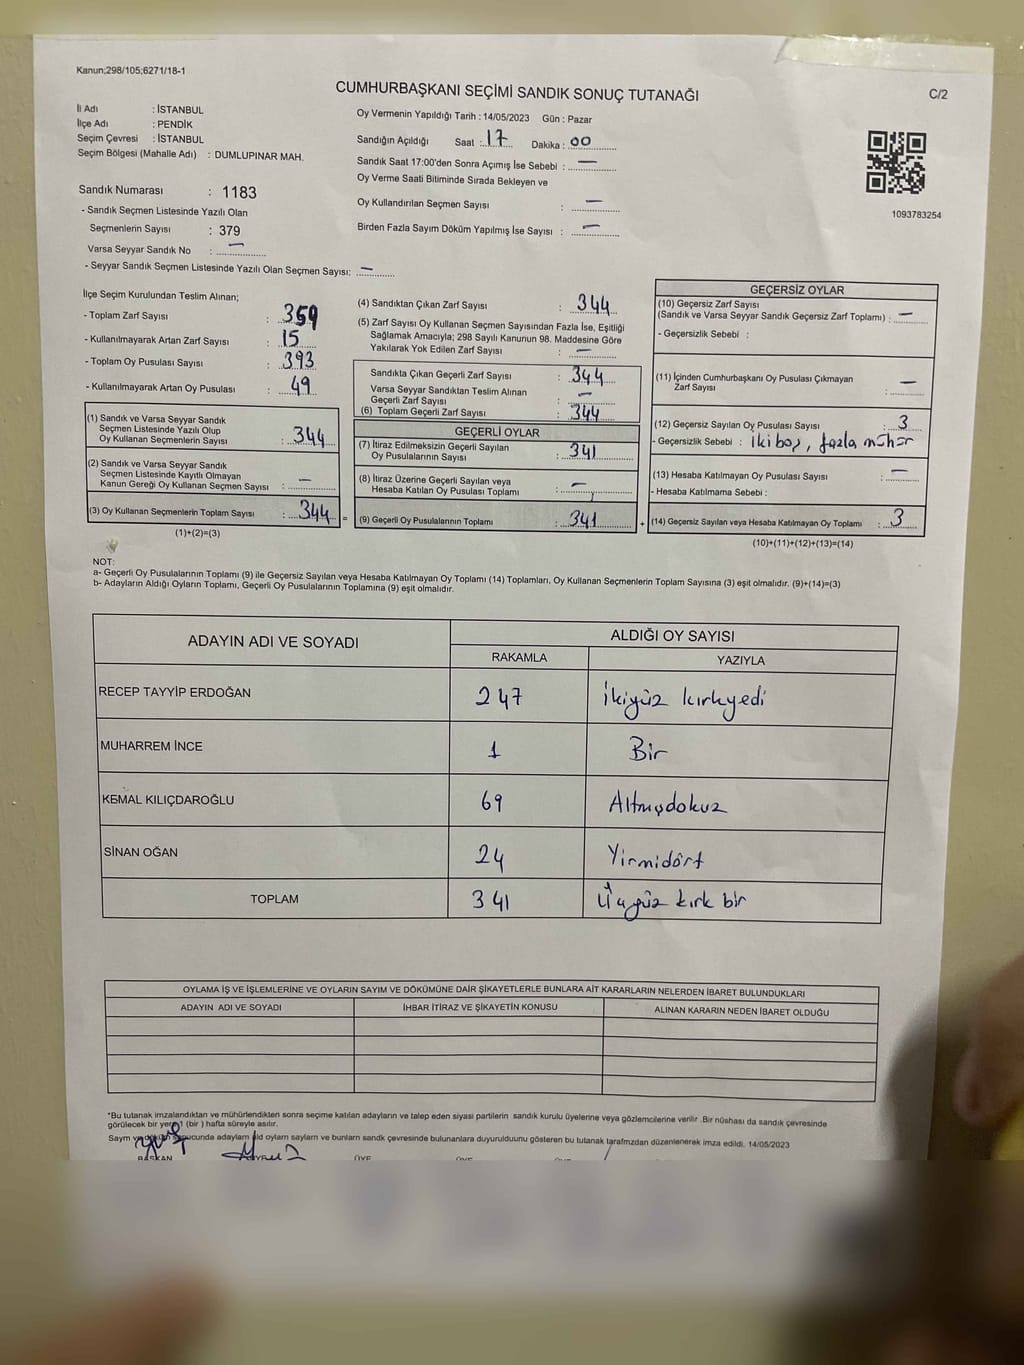 Kanun;298/105;6271/18-1
CUMHURBAŞKANI SEÇİMİ SANDIK SONUÇ TUTANAĞI
C/2
İl Adı : İSTANBUL
İlçe Adı : PENDİK
Seçim Çevresi : İSTANBUL
Seçim Bölgesi (Mahalle Adı) : DUMLUPINAR MAH.
Sandık Numarası : 1183
- Sandık Seçmen Listesinde Yazılı Olan
Seçmenlerin Sayısı : 379
Varsa Seyyar Sandık No : —
- Seyyar Sandık Seçmen Listesinde Yazılı Olan Seçmen Sayısı: —
Oy Vermenin Yapıldığı Tarih : 14/05/2023 Gün : Pazar
Sandığın Açıldığı Saat : 17 Dakika : 00
Sandık Saat 17:00'den Sonra Açımış İse Sebebi : —
Oy Verme Saati Bitiminde Sırada Bekleyen ve
Oy Kullandırılan Seçmen Sayısı : —
Birden Fazla Sayım Döküm Yapılmış İse Sayısı : —
1093783254
İlçe Seçim Kurulundan Teslim Alınan;
- Toplam Zarf Sayısı : 359
- Kullanılmayarak Artan Zarf Sayısı : 15
- Toplam Oy Pusulası Sayısı : 393
- Kullanılmayarak Artan Oy Pusulası : 49
(1) Sandık ve Varsa Seyyar Sandık
Seçmen Listesinde Yazılı Olup
Oy Kullanan Seçmenlerin Sayısı : 344
(2) Sandık ve Varsa Seyyar Sandık
Seçmen Listesinde Kayıtlı Olmayan
Kanun Gereği Oy Kullanan Seçmen Sayısı : —
(3) Oy Kullanan Seçmenlerin Toplam Sayısı : 344 =
(1)+(2)=(3)
(4) Sandıktan Çıkan Zarf Sayısı : 344
(5) Zarf Sayısı Oy Kullanan Seçmen Sayısından Fazla İse, Eşitliği
Sağlamak Amacıyla; 298 Sayılı Kanunun 98. Maddesine Göre
Yakılarak Yok Edilen Zarf Sayısı : —
Sandıkta Çıkan Geçerli Zarf Sayısı : 344
Varsa Seyyar Sandıktan Teslim Alınan
Geçerli Zarf Sayısı : —
(6) Toplam Geçerli Zarf Sayısı : 344
GEÇERLİ OYLAR
(7) İtiraz Edilmeksizin Geçerli Sayılan
Oy Pusulalarının Sayısı : 341
(8) İtiraz Üzerine Geçerli Sayılan veya
Hesaba Katılan Oy Pusulası Toplamı : —
(9) Geçerli Oy Pusulalarının Toplamı : 341 +
GEÇERSİZ OYLAR
(10) Geçersiz Zarf Sayısı
(Sandık ve Varsa Seyyar Sandık Geçersiz Zarf Toplamı) : —
- Geçersizlik Sebebi :
(11) İçinden Cumhurbaşkanı Oy Pusulası Çıkmayan
Zarf Sayısı : —
(12) Geçersiz Sayılan Oy Pusulası Sayısı : 3
- Geçersizlik Sebebi : iki boş, fazla mühür
(13) Hesaba Katılmayan Oy Pusulası Sayısı : —
- Hesaba Katılmama Sebebi :
(14) Geçersiz Sayılan veya Hesaba Katılmayan Oy Toplamı : 3
(10)+(11)+(12)+(13)=(14)
NOT:
a- Geçerli Oy Pusulalarının Toplamı (9) ile Geçersiz Sayılan veya Hesaba Katılmayan Oy Toplamı (14) Toplamları, Oy Kullanan Seçmenlerin Toplam Sayısına (3) eşit olmalıdır. (9)+(14)=(3)
b- Adayların Aldığı Oyların Toplamı, Geçerli Oy Pusulalarının Toplamına (9) eşit olmalıdır.
ADAYIN ADI VE SOYADI ALDIĞI OY SAYISI
RAKAMLA YAZIYLA
RECEP TAYYİP ERDOĞAN 247 İkiyüz kırkyedi
MUHARREM İNCE 1 Bir
KEMAL KILIÇDAROĞLU 69 Altmışdokuz
SİNAN OĞAN 24 Yirmidört
TOPLAM 341 Üçyüz kırk bir
OYLAMA İŞ VE İŞLEMLERİNE VE OYLARIN SAYIM VE DÖKÜMÜNE DAİR ŞİKAYETLERLE BUNLARA AİT KARARLARIN NELERDEN İBARET BULUNDUKLARI
ADAYIN ADI VE SOYADI İHBAR İTİRAZ VE ŞİKAYETİN KONUSU ALINAN KARARIN NEDEN İBARET OLDUĞU
*Bu tutanak imzalandıktan ve mühürlendikten sonra seçime katılan adayların ve talep eden siyasi partilerin sandık kurulu üyelerine veya gözlemcilerine verilir .Bir nüshası da sandık çevresinde
görülecek bir yere 1 (bir ) hafta süreyle asılır.
Saym adaylarn ald oylarn saylarn ve bunlarn sandk çevresinde bulunanlara duyurulduunu gösteren bu tutanak tarafmzdan düzenlenerek imza edildi. 14/05/2023
BAŞKAN